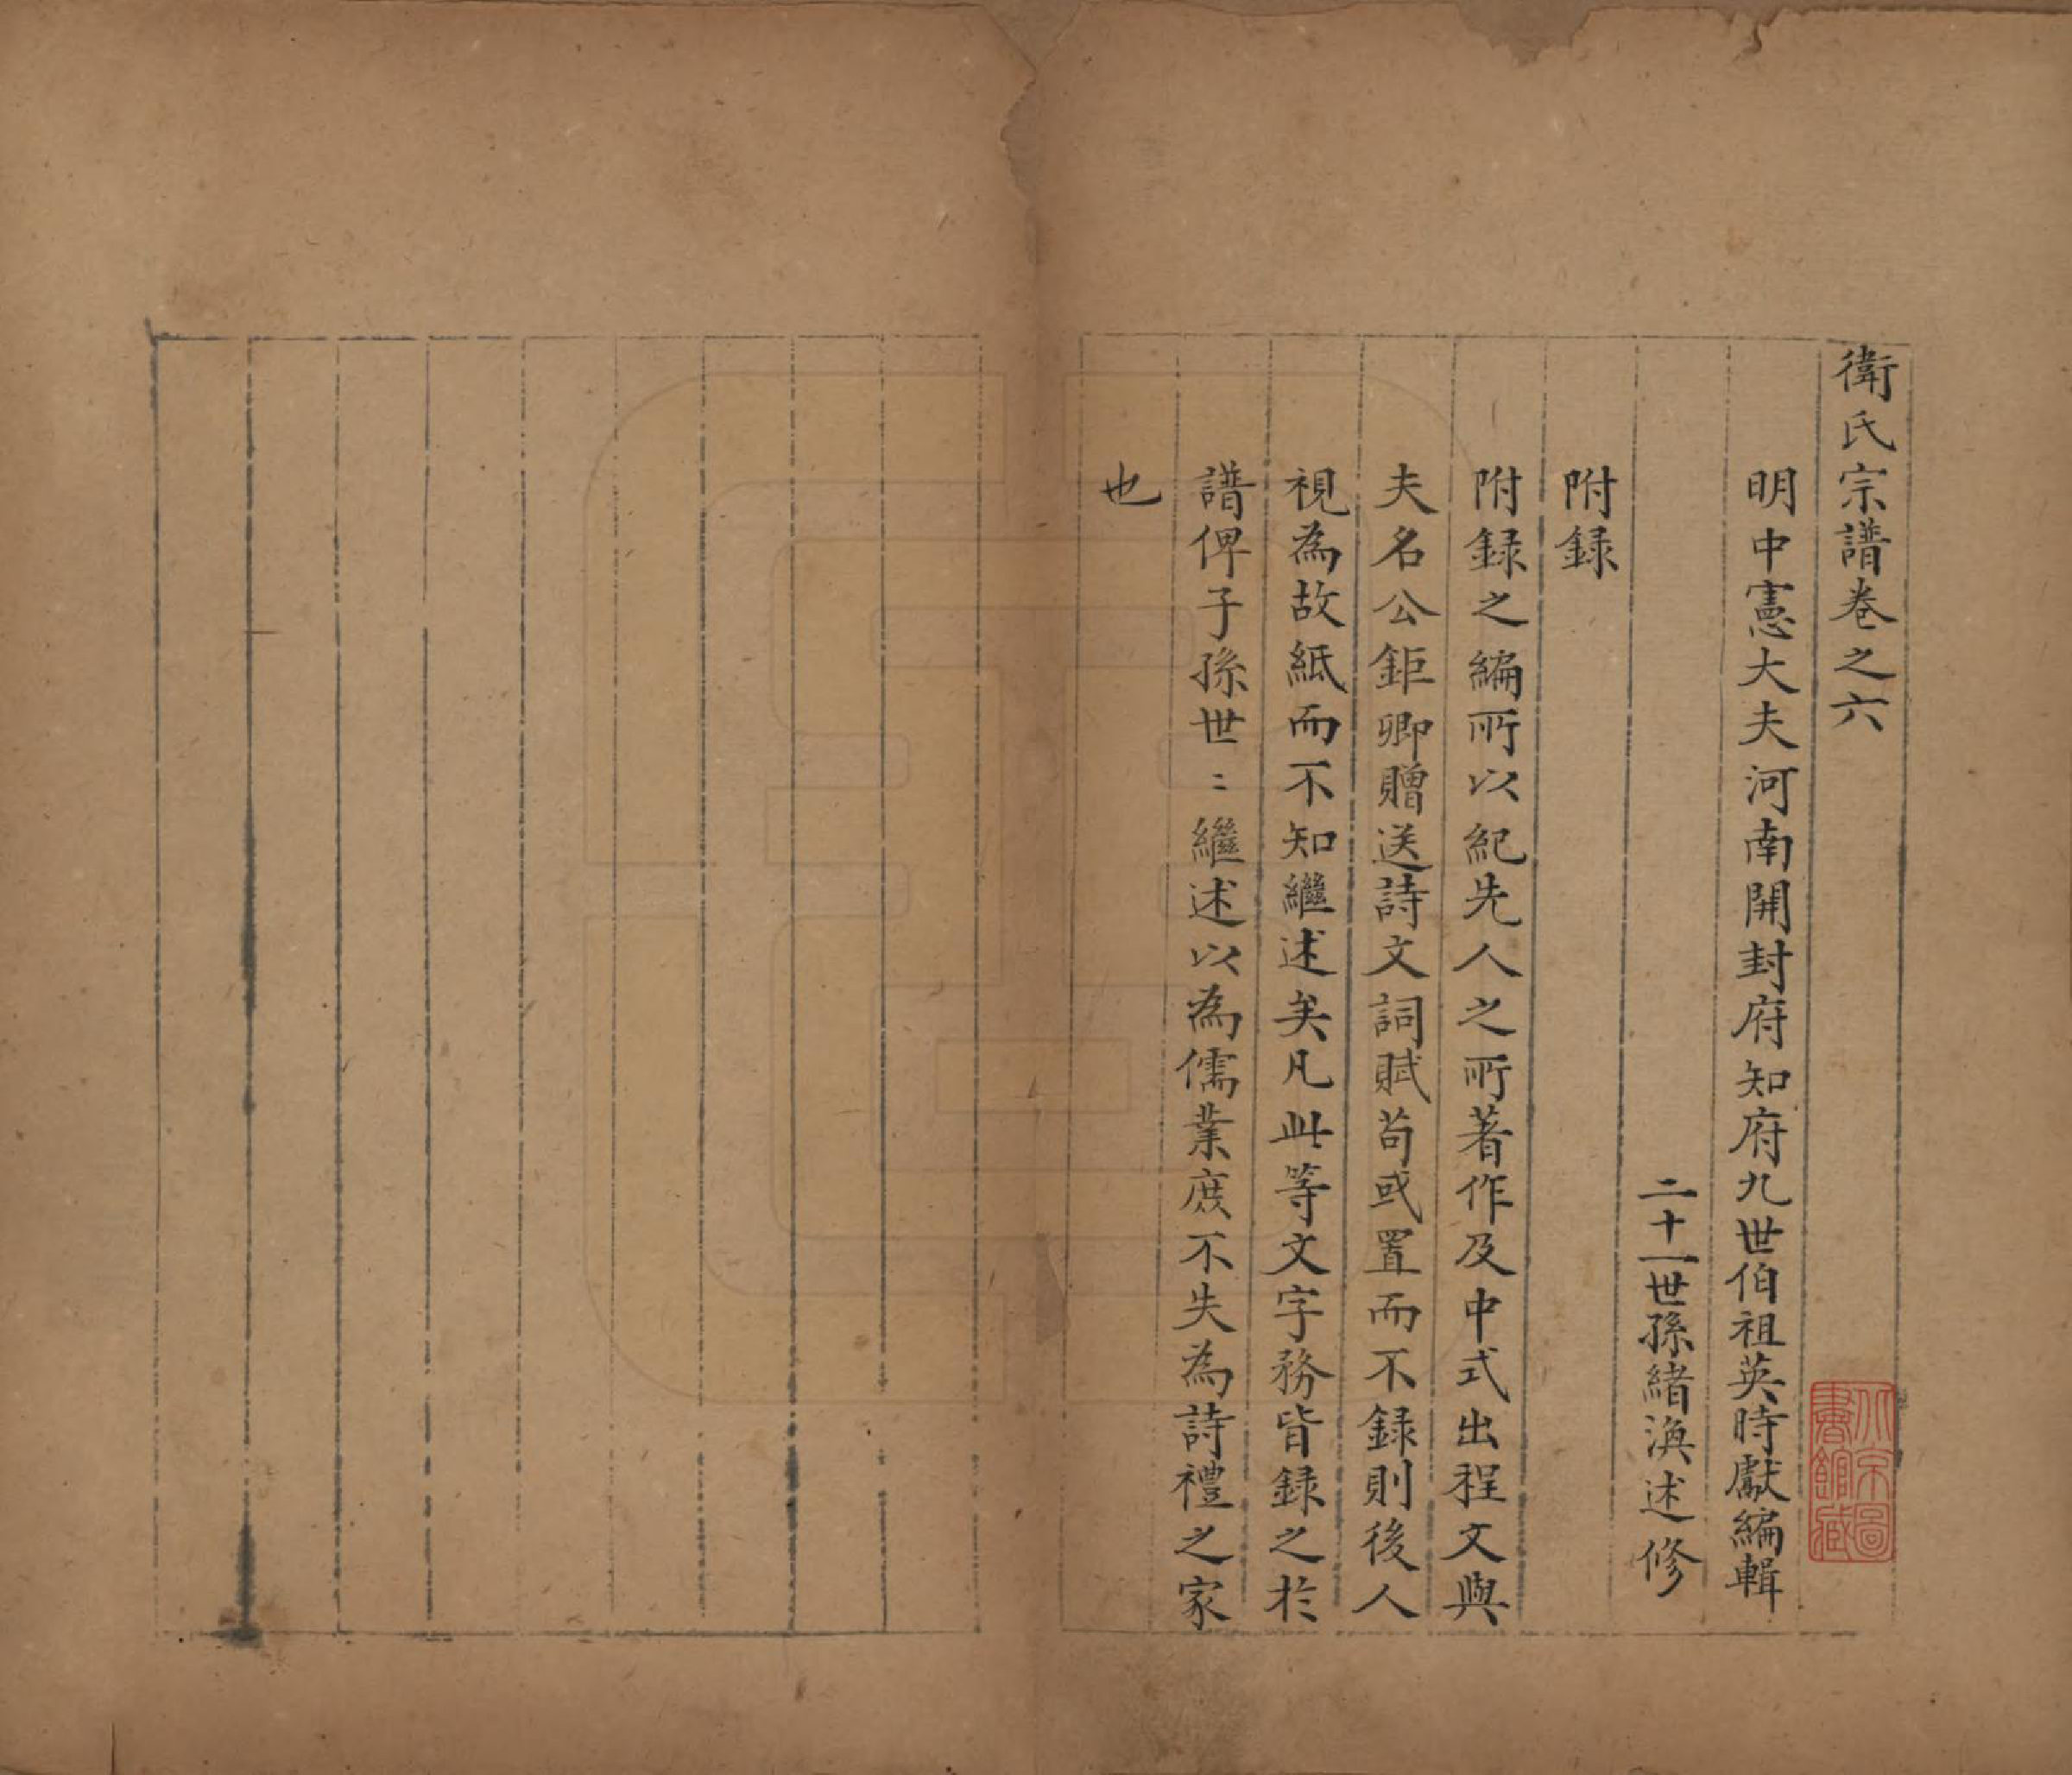 衛氏宗譜卷之六
明中憲大夫河南開封府知府九世伯祖英時獻編輯
二十一世孫緒渙述修
附録
附録之編所以紀先人之所著作及中式出程文與
夫名公鉅卿贈送詩文詞賦苟或置而不録則後人
視為故紙而不知繼述矣凡此等文字務皆録之於
譜俾子孫世〻繼述以為儒業庶不失為詩禮之家
也
北京圖
書館藏